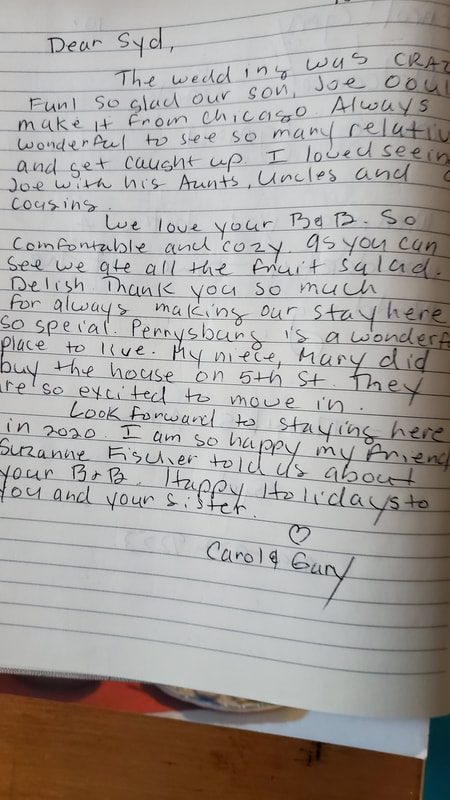 Dear Syd,
The wedding was CRAZ
Fun! So glad our son, Joe coul
make it from Chicago. Always
wonderful to see so many relativ
and get caught up. I loved seein
Joe with his Aunts, Uncles and
cousins.
We love your B&B. So
comfortable and cozy. As you can
see we ate all the fruit salad.
Delish Thank you so much
for always making our stay here
so speial. Perrysburg is a wonderf
place to live. My niece, Mary did
buy the house on 5th St. They
re so excited to move in.
Look forward to staying here
in 2020. I am so happy my friend
Suzanne Fischer told us about
your B&B. Happy Holidays to
you and your sister.
♡
Carol & Gary